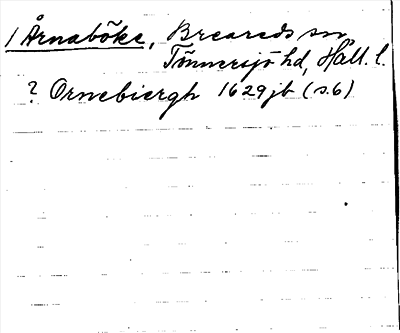 1 Årnaböke, Breareds sn
Tönnersjö hd, Hall. l.
? Ornebiergh 1629 jb (s. 6)